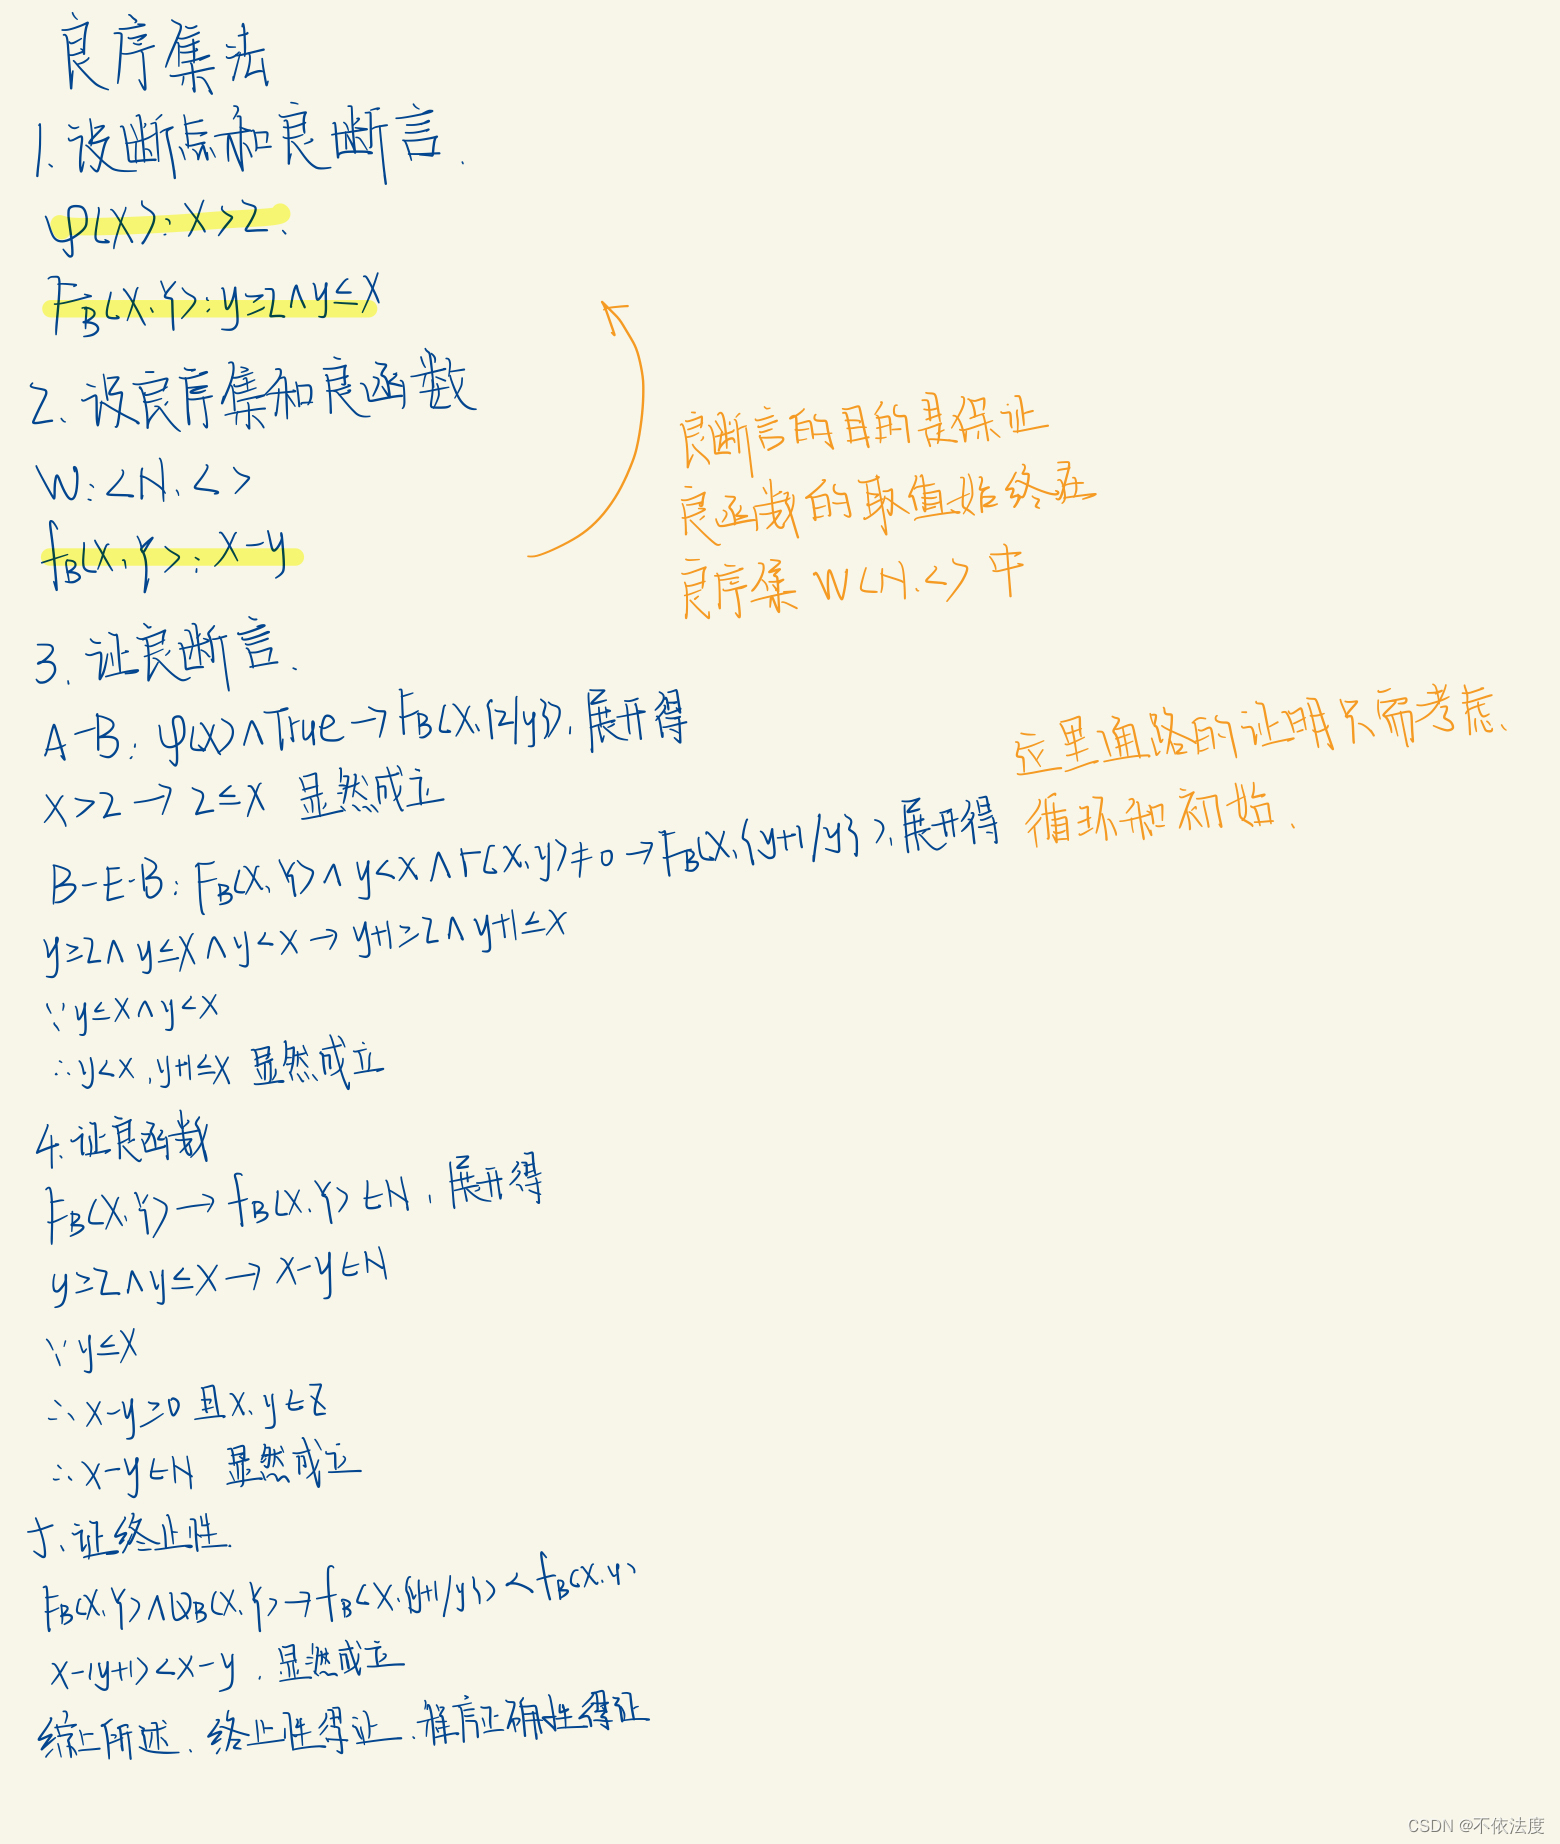 良序集法
1. 设断点和良断言.
φ(X): X>2.
F_B(X,Y): y≥2∧y≤X
2. 设良序集和良函数
W: <N, <>
f_B(X,Y): X-y
良断言的目的是保证
良函数的取值始终在
良序集 W<N,<> 中
3. 证良断言.
A-B: φ(X)∧True→F_B(X,{2/y}), 展开得
X>2→2≤X 显然成立
B-E-B: F_B(X,Y)∧y<X∧r(X,y)≠0→F_B(X,{y+1/y}), 展开得
这里通路的证明只需考虑
循环和初始.
y≥2∧y≤X∧y<X→y+1≥2∧y+1≤X
∵y≤X∧y<X
∴y<X, y+1≤X 显然成立
4. 证良函数
F_B(X,Y)→f_B(X,Y)∈N, 展开得
y≥2∧y≤X→X-y∈N
∵y≤X
∴X-y≥0 且X,y∈Z
∴X-y∈N 显然成立
5. 证终止性.
F_B(X,Y)∧Q_B(X,Y)→f_B(X,{y+1/y})<f_B(X,y)
X-(y+1)<X-y. 显然成立
综上所述, 终止性得证, 正确性得证
CSDN @不依法度